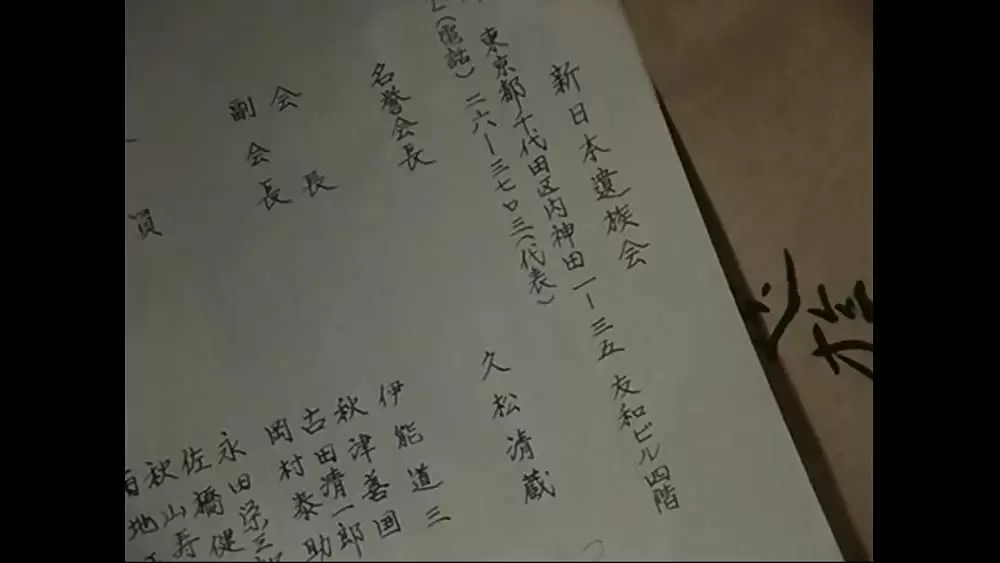 新日本遺族会
東京都千代田区内神田一ー三五 友和ビル四階
(電話) 二六ー三七〇三(代表)
名誉会長 久松清蔵
会長 伊能道三
副会長 秋津善国
古田清一郎
岡村泰助
員 永田栄三
佐橋健
秋山寿
地